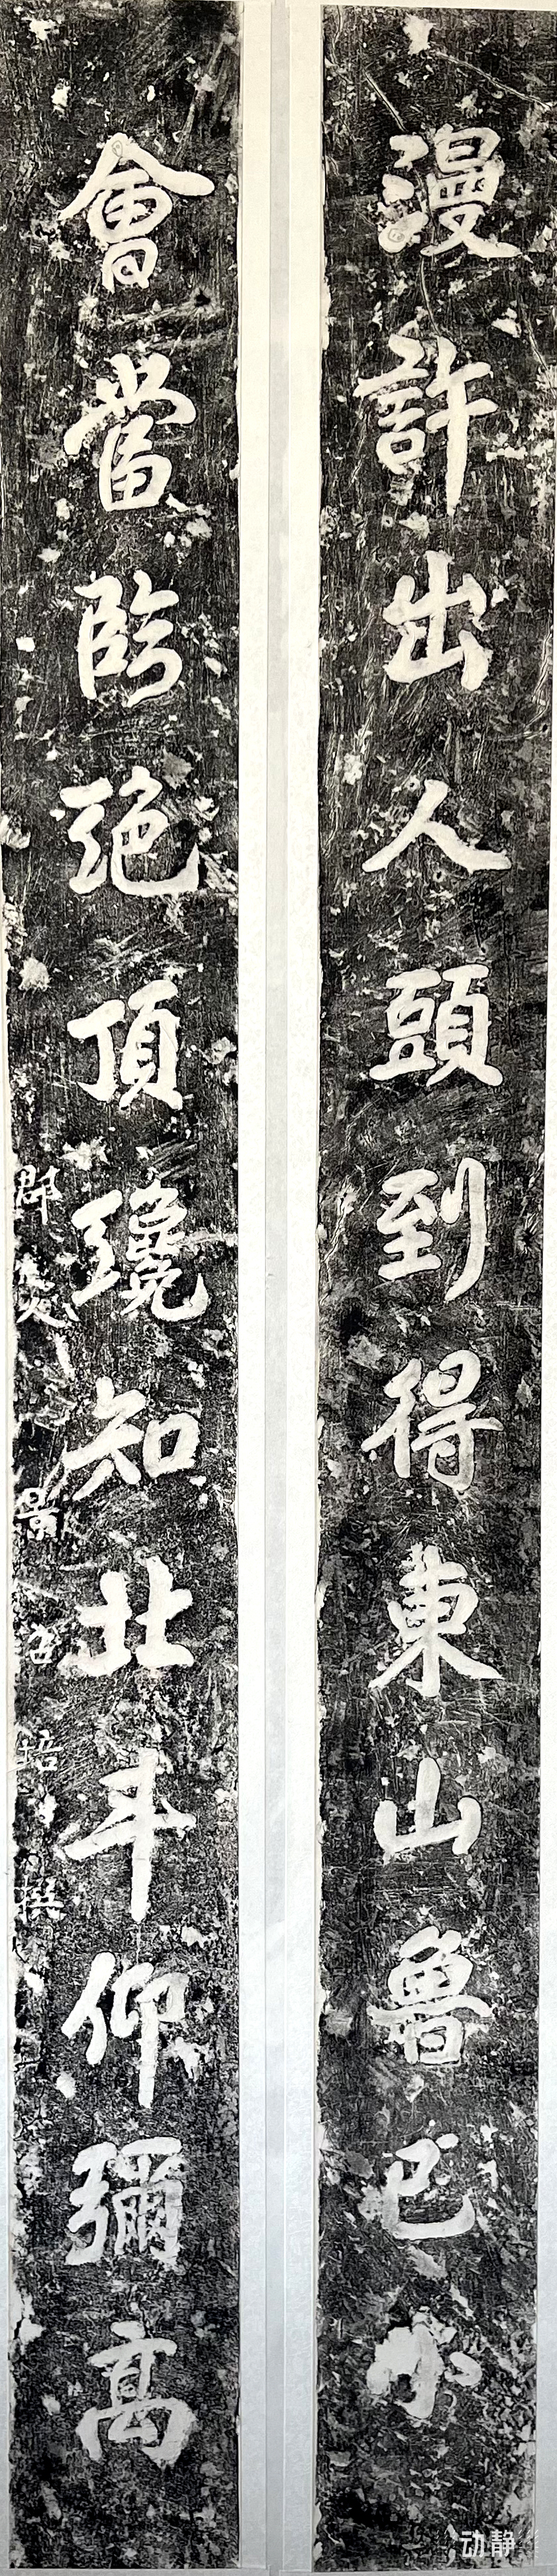 漫許出人頭到得東山魯已小
會當臨絕頂纔知北斗仰彌高
郡人景召培撰
动静